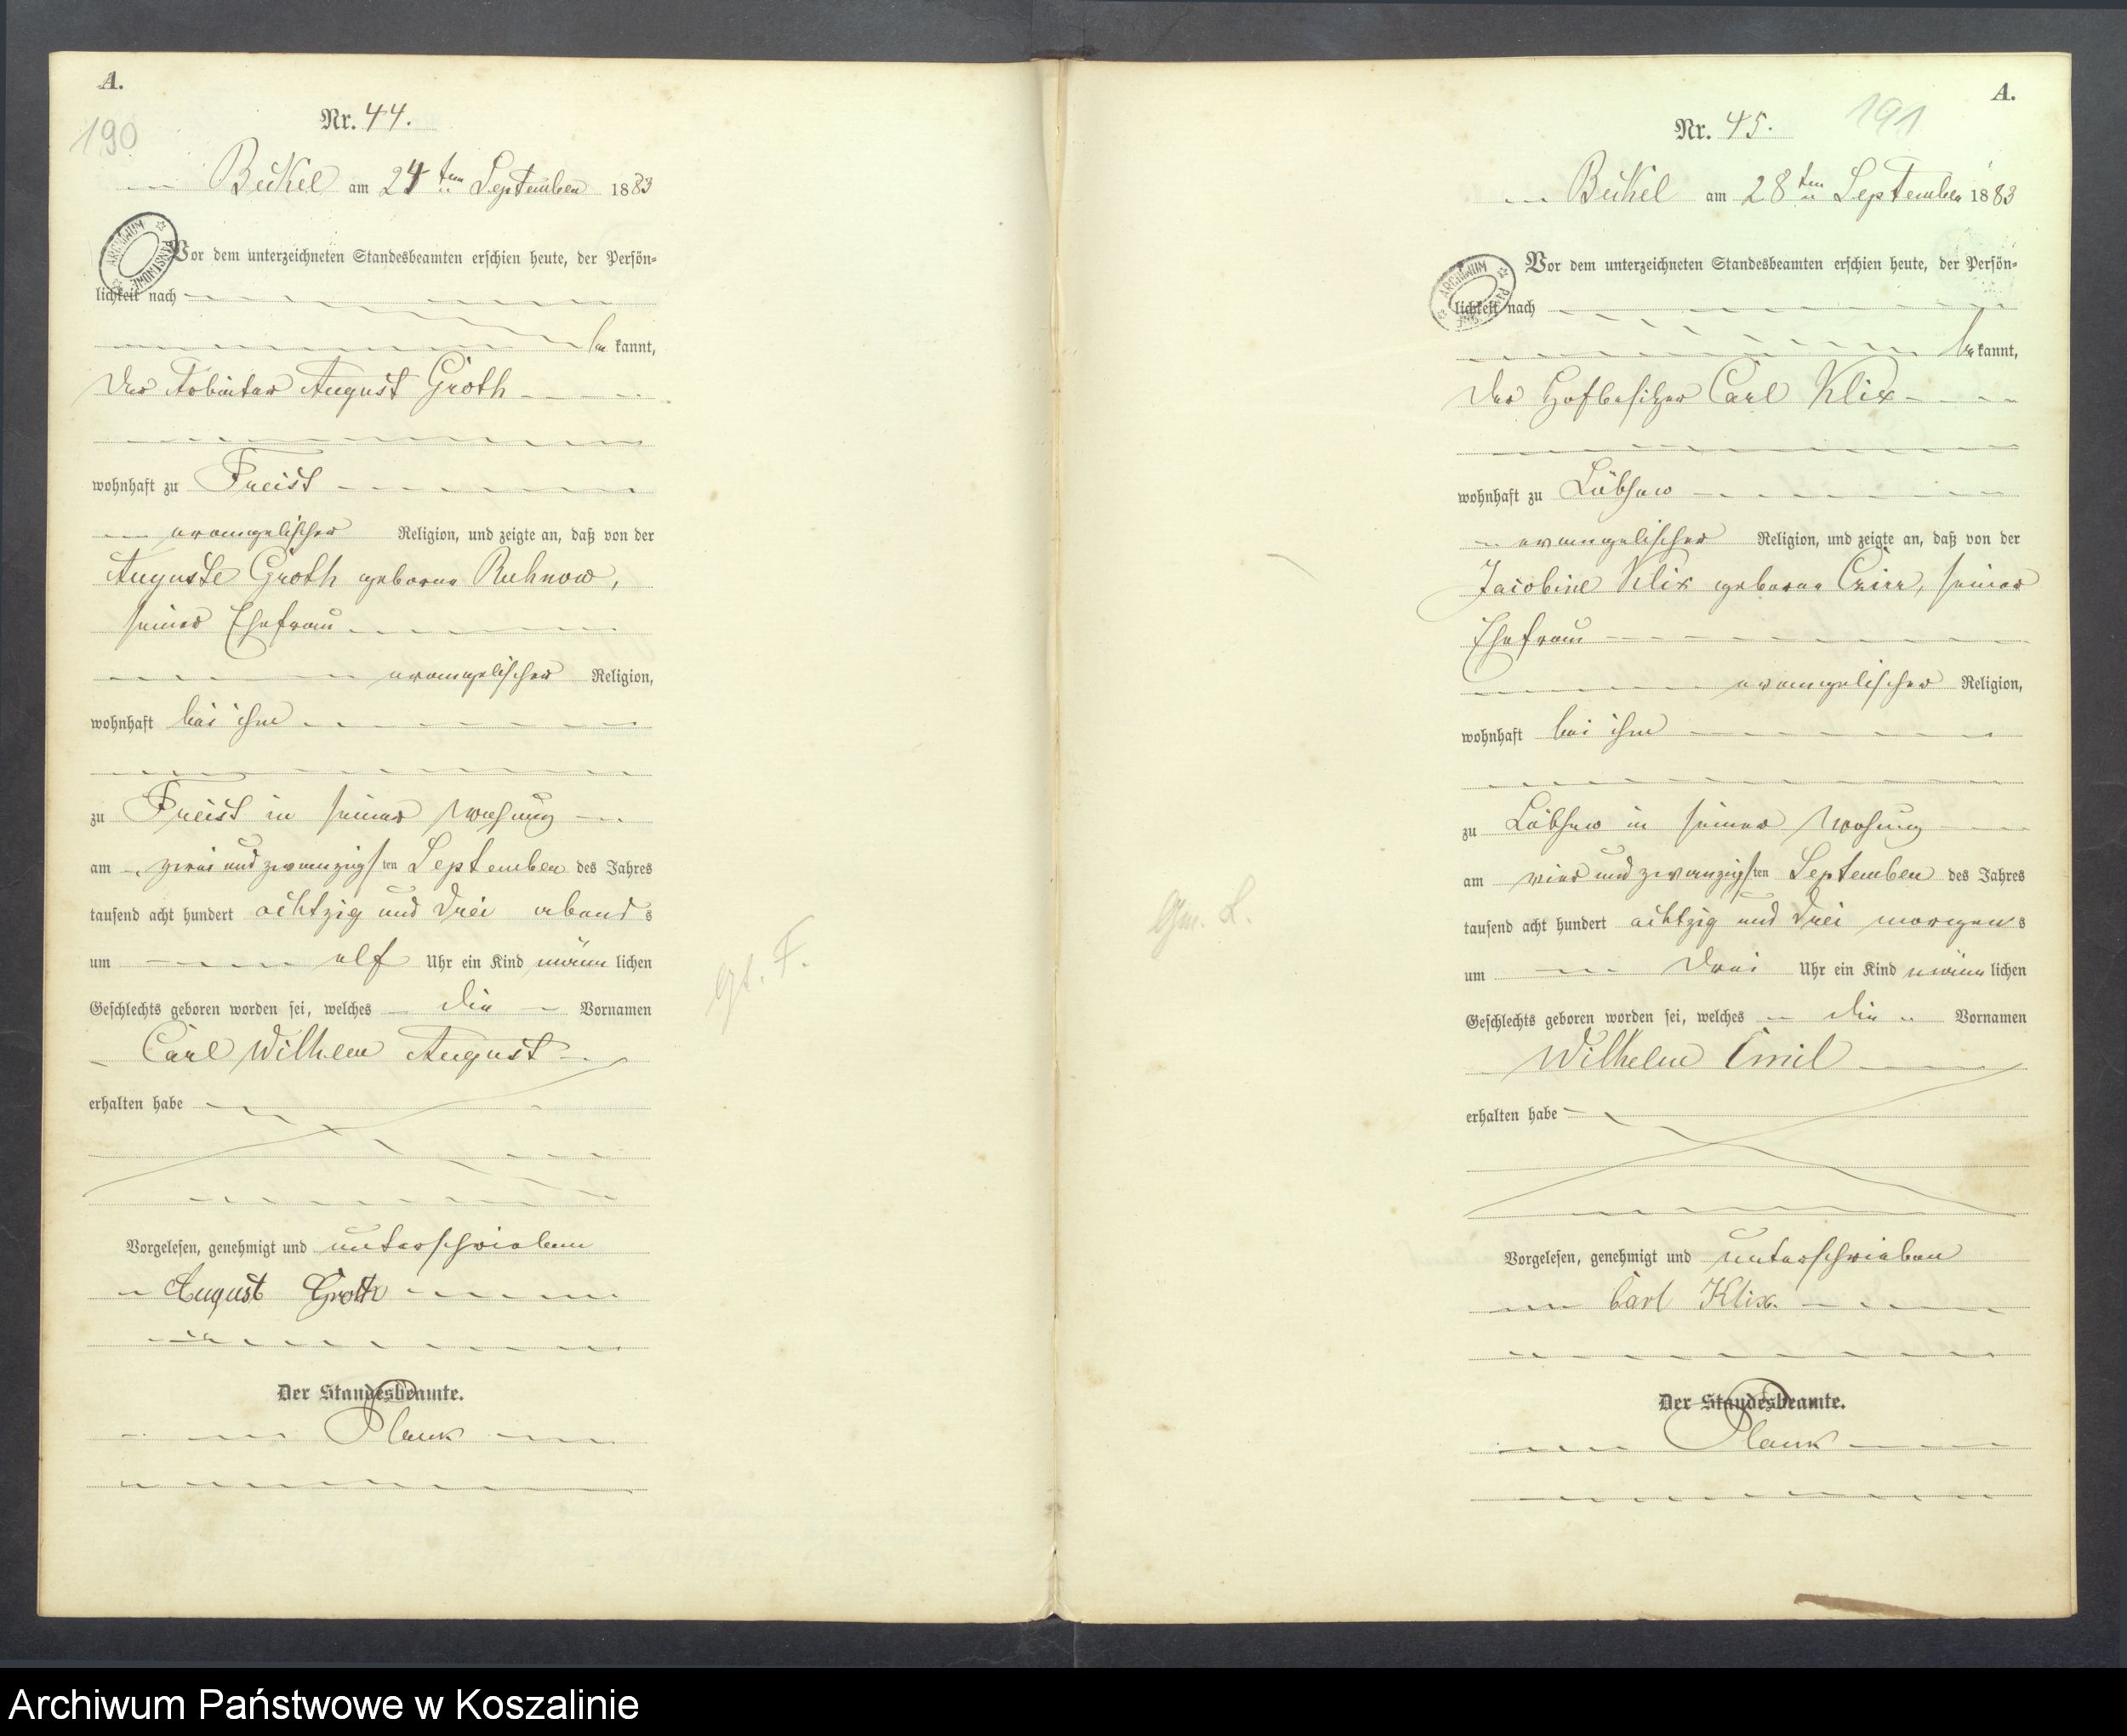 A.
190
Nr. 44.
Beckel am 24ten September 1883
Vor dem unterzeichneten Standesbeamten erschien heute, der Persön-
lichkeit nach
be kannt,
der Arbeiter August Groth
wohnhaft zu Freist
evangelischer Religion, und zeigte an, daß von der
Auguste Groth geborne Ruhnow,
seiner Ehefrau
evangelischer Religion,
wohnhaft bei ihm
zu Freist in seiner Wohnung
am zwei und zwanzigsten September des Jahres
tausend acht hundert achtzig und drei abends
um elf Uhr ein Kind männlichen
Geschlechts geboren worden sei, welches die Vornamen
Carl Wilhelm August
erhalten habe
Vorgelesen, genehmigt und unterschrieben
August Groth
Der Standesbeamte.
Planck
gt. F.
A.
191
Nr. 45.
Beckel am 28ten September 1883
Vor dem unterzeichneten Standesbeamten erschien heute, der Persön-
lichkeit nach
be kannt,
der Hofbesitzer Carl Klix
wohnhaft zu Lübsow
evangelischer Religion, und zeigte an, daß von der
Jacobine Klix geborne seiner
Ehefrau
evangelischer Religion,
wohnhaft bei ihm
zu Lübsow in seiner Wohnung
am vier und zwanzigsten September des Jahres
tausend acht hundert achtzig und drei morgens
um drei Uhr ein Kind männlichen
Geschlechts geboren worden sei, welches die Vornamen
Wilhelm Emil
erhalten habe
Vorgelesen, genehmigt und unterschrieben
Carl Klix.
Der Standesbeamte.
Planck
Gm. L.
ARCHIWUM PAŃSTWOWE
ARCHIWUM
Archiwum Państwowe w Koszalinie